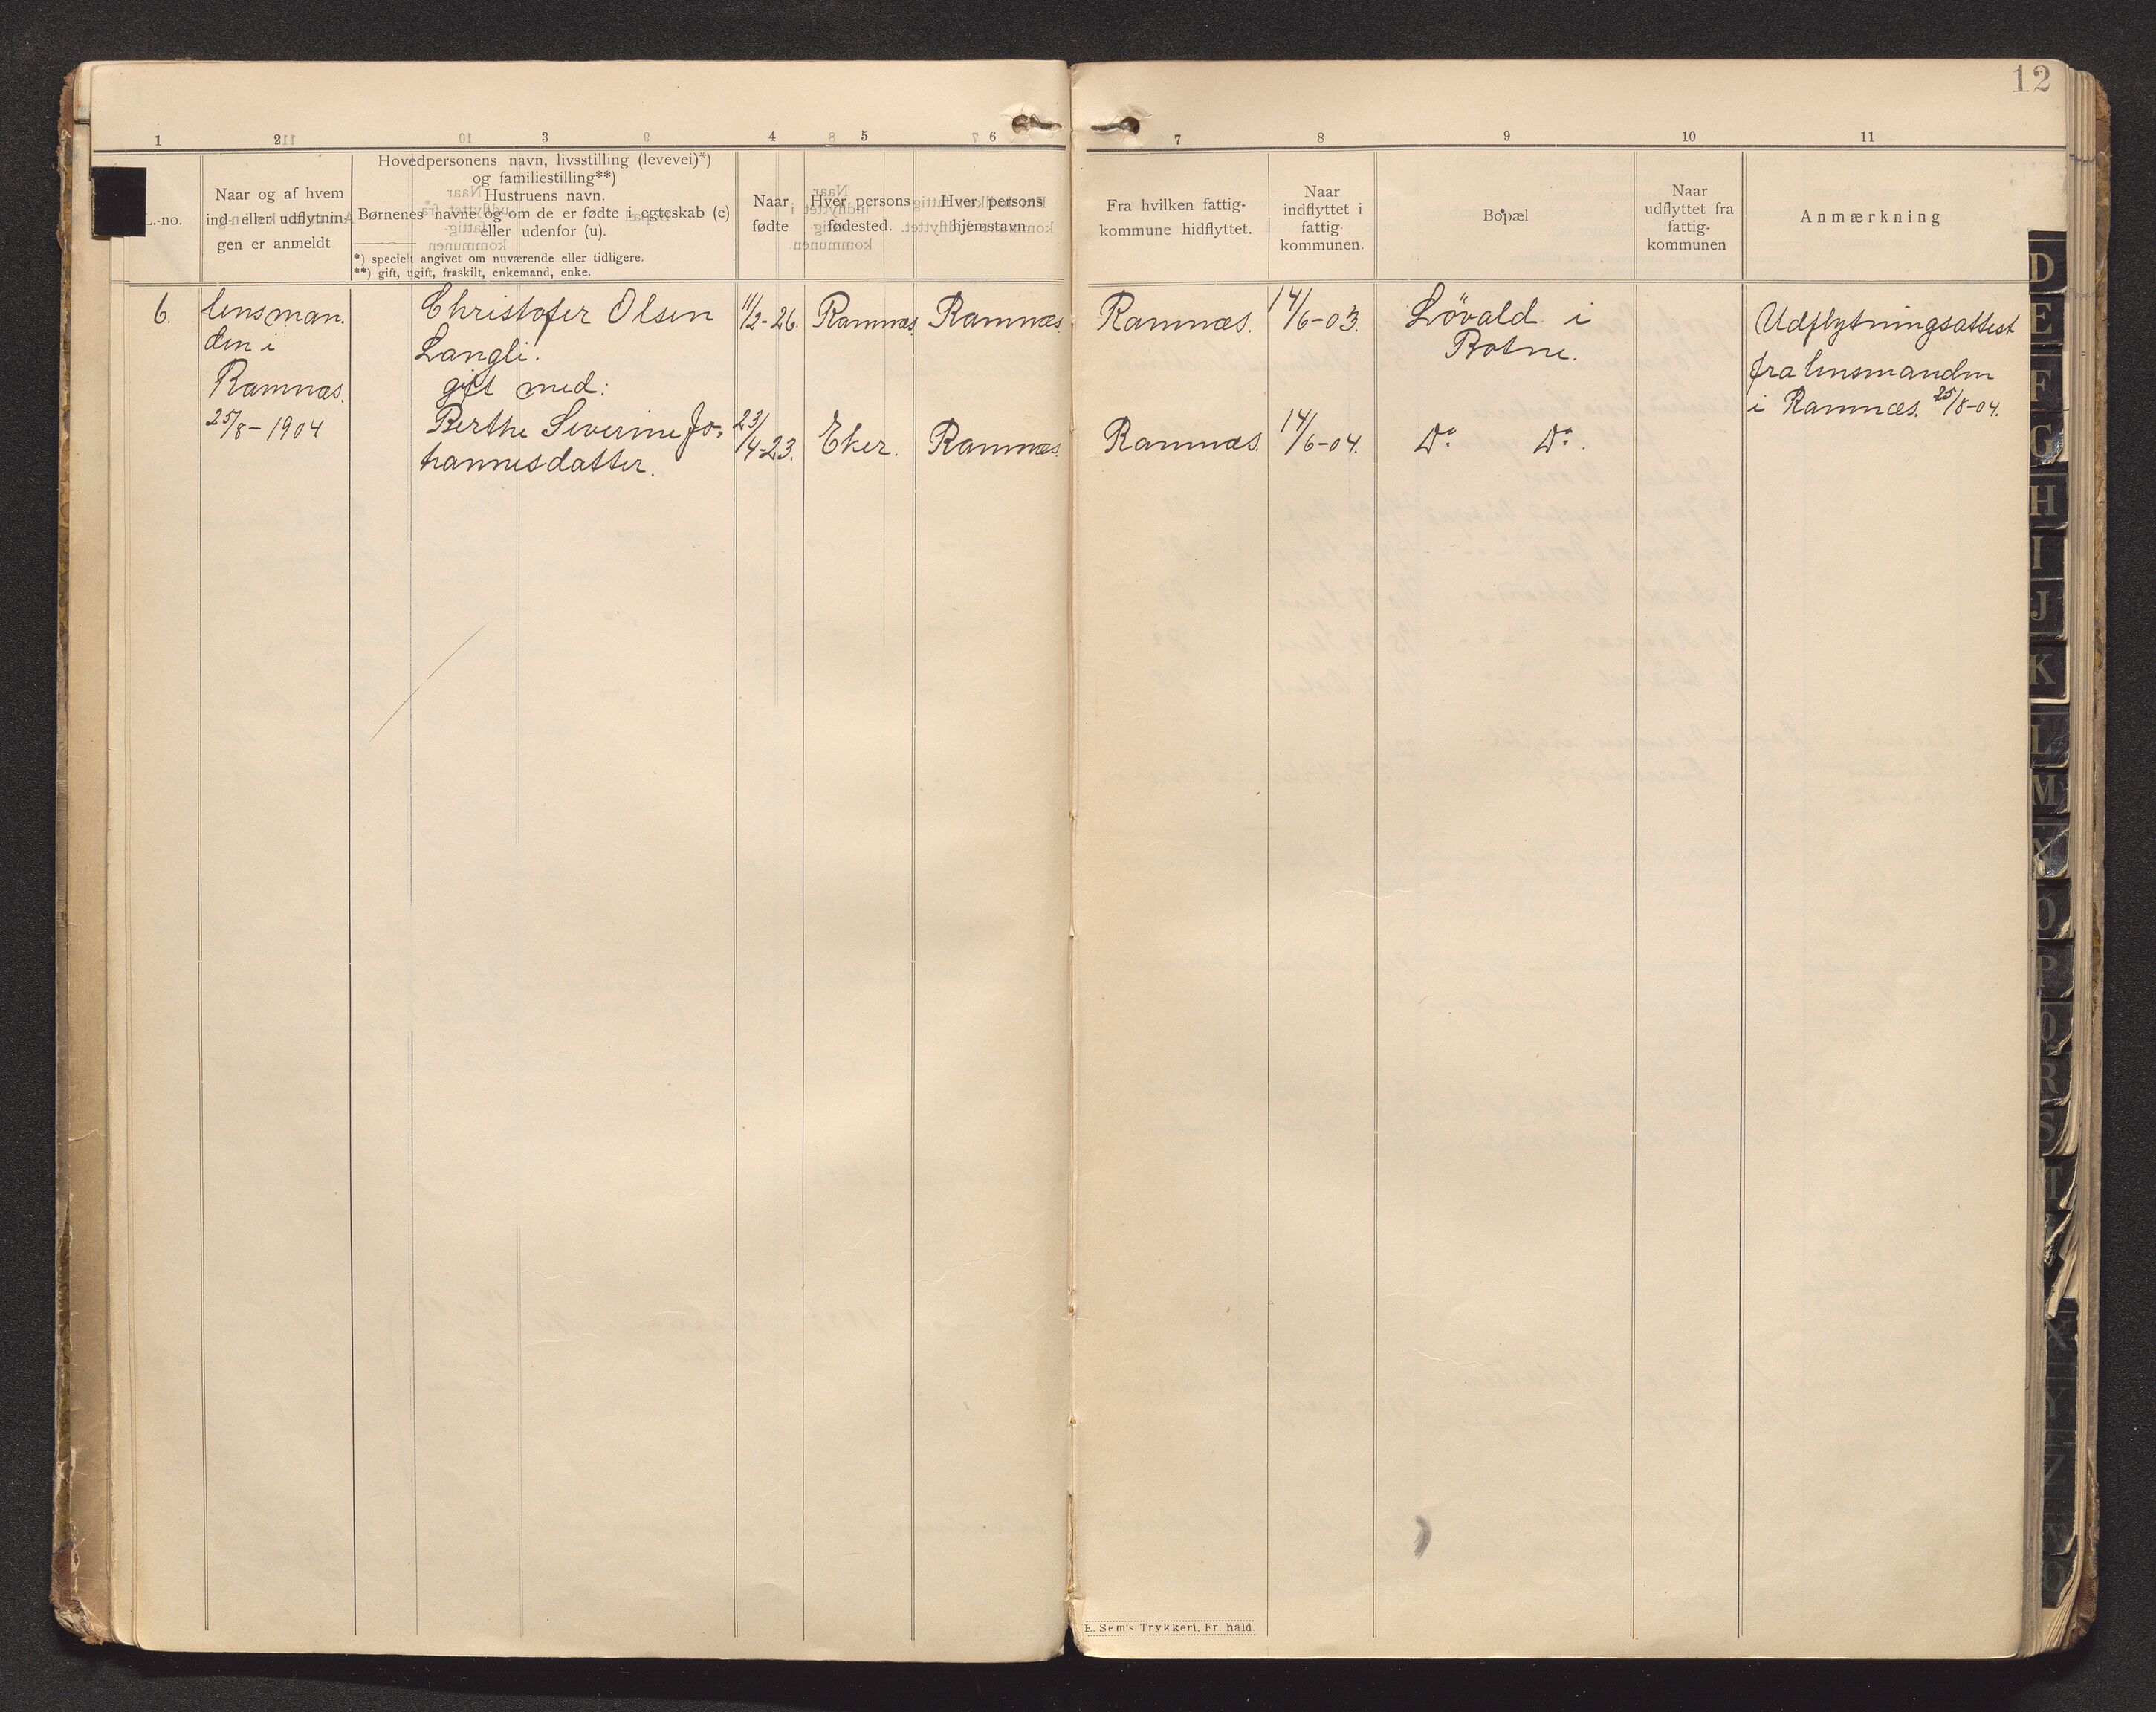 12
1 2 3 4 5 6 7 8 9 10 11
L.-no.
Naar og af hvem
ind- eller udflytnin-
gen er anmeldt
Hovedpersonens navn, livsstilling (levevei)*)
og familiestilling**)
Hustruens navn.
Børnenes navne og om de er fødte i egteskab (e)
eller udenfor (u).
*) specielt angivet om nuværende eller tidligere.
**) gift, ugift, fraskilt, enkemand, enke.
Naar
fødte
Hver persons
fødested.
Hver persons
hjemstavn.
Fra hvilken fattig-
kommune hidflyttet.
Naar
indflyttet i
fattig-
kommunen.
Bopæl
Naar
udflyttet fra
fattig-
kommunen
Anmærkning
6.
lensman.
den i
Ramnæs.
25/8-1904
Christofer Olsen
Langli.
gift med:
Berthe Severine Jo-
hannesdatter.
11/2-26.
Ramnæs.
Ramnæs.
Ramnæs.
14/6-03.
Lövald i
Botne.
Udflytningsattest
fra lensmanden
i Ramnæs. 25/8-04.
23/4-23.
Eker.
Ramnæs.
Ramnæs.
14/6-04.
Do Do.
D
E
F
G
H
I
J
K
L
M
N
O
P
Q
R
S
T
X
Y
Z
Æ
Ø
E. Sem's Trykkeri, Fr.hald.